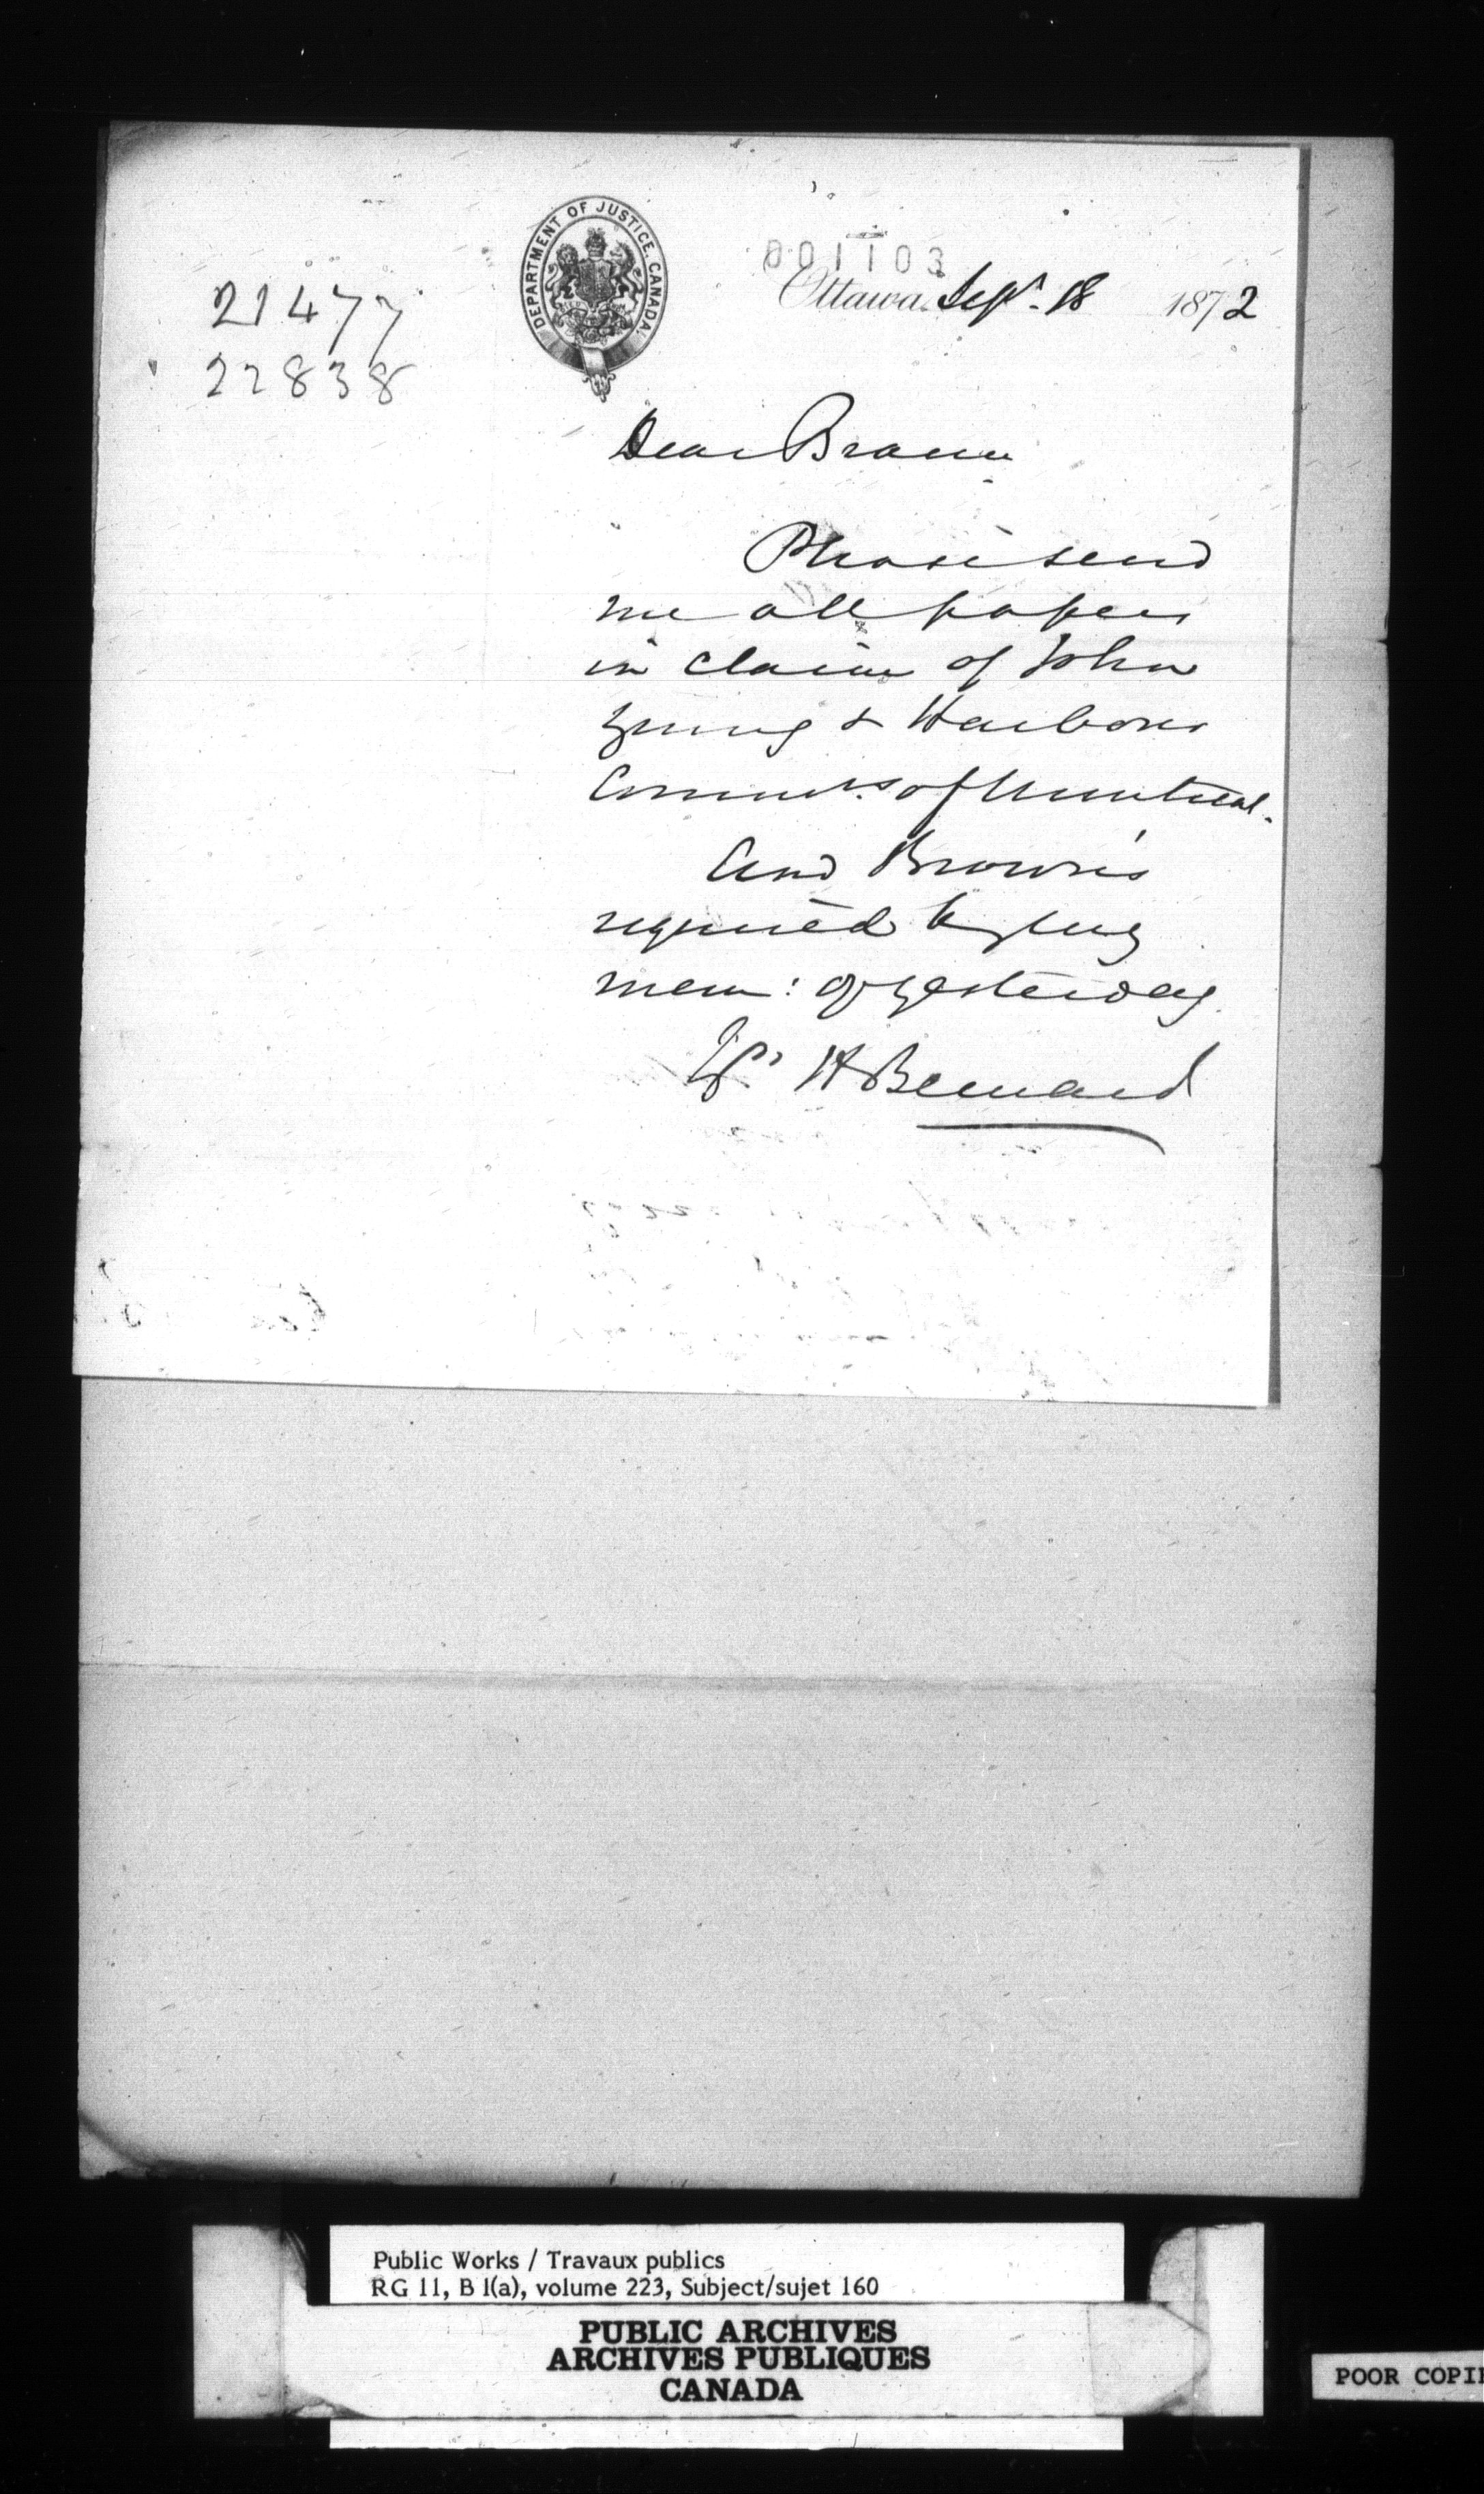 001103
DEPARTMENT OF JUSTICE, CANADA.
Ottawa, Sept. 18 1872
21477
22838
Dear Braun
Please send
me all papers
in claim of John
Young & Harbour
Commrs. of Montreal.
And Brown's
required by my
mem: of yesterday.
Yrs H Bernard
Public Works / Travaux publics
RG 11, B 1(a), volume 223, Subject/sujet 160
PUBLIC ARCHIVES
ARCHIVES PUBLIQUES
CANADA
POOR COPI